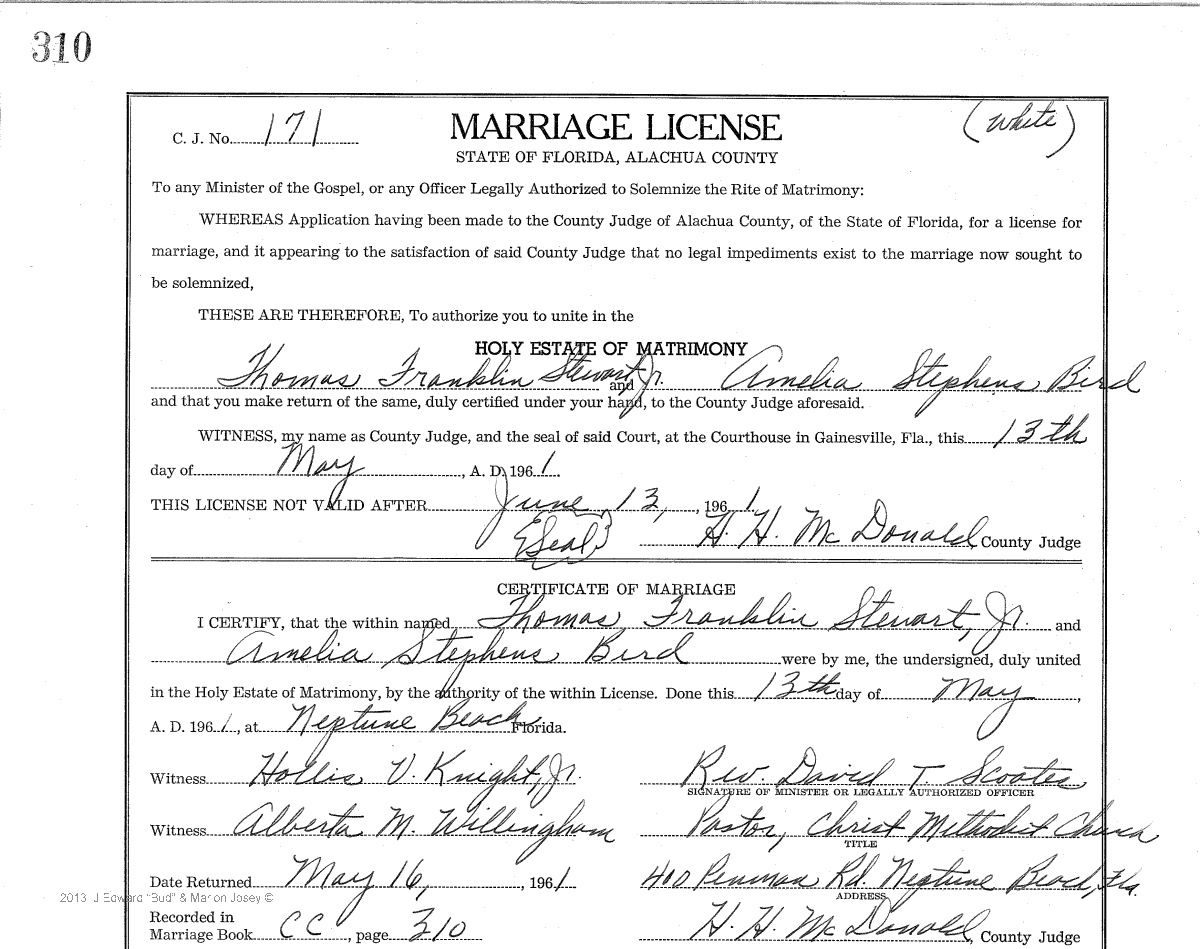 310
C. J. No. 171
MARRIAGE LICENSE
(white)
STATE OF FLORIDA, ALACHUA COUNTY
To any Minister of the Gospel, or any Officer Legally Authorized to Solemnize the Rite of Matrimony:
WHEREAS Application having been made to the County Judge of Alachua County, of the State of Florida, for a license for
marriage, and it appearing to the satisfaction of said County Judge that no legal impediments exist to the marriage now sought to
be solemnized,
THESE ARE THEREFORE, To authorize you to unite in the
HOLY ESTATE OF MATRIMONY
Thomas Franklin Stewart, Jr. and Amelia Stephens Bird
and that you make return of the same, duly certified under your hand, to the County Judge aforesaid.
WITNESS, my name as County Judge, and the seal of said Court, at the Courthouse in Gainesville, Fla., this 13th
day of May, A. D. 1961
THIS LICENSE NOT VALID AFTER June 13, , 1961
(Seal) H. H. McDonald County Judge
CERTIFICATE OF MARRIAGE
I CERTIFY, that the within named Thomas Franklin Stewart, Jr. and
Amelia Stephens Bird were by me, the undersigned, duly united
in the Holy Estate of Matrimony, by the authority of the within License. Done this 13th day of May,
A. D. 1961, at Neptune Beach Florida.
Witness Hollis V. Knight, Jr. Rev. David T. Scoates
SIGNATURE OF MINISTER OR LEGALLY AUTHORIZED OFFICER
Witness Alberta M. Willingham Pastor, Christ Methodist Church
TITLE
Date Returned May 16, , 1961 400 Penman Rd. Neptune Beach, Fla.
ADDRESS
2013 J Edward "Bud" & Marion Josey ©
Recorded in
Marriage Book CC, page 310 H. H. McDonald, County Judge